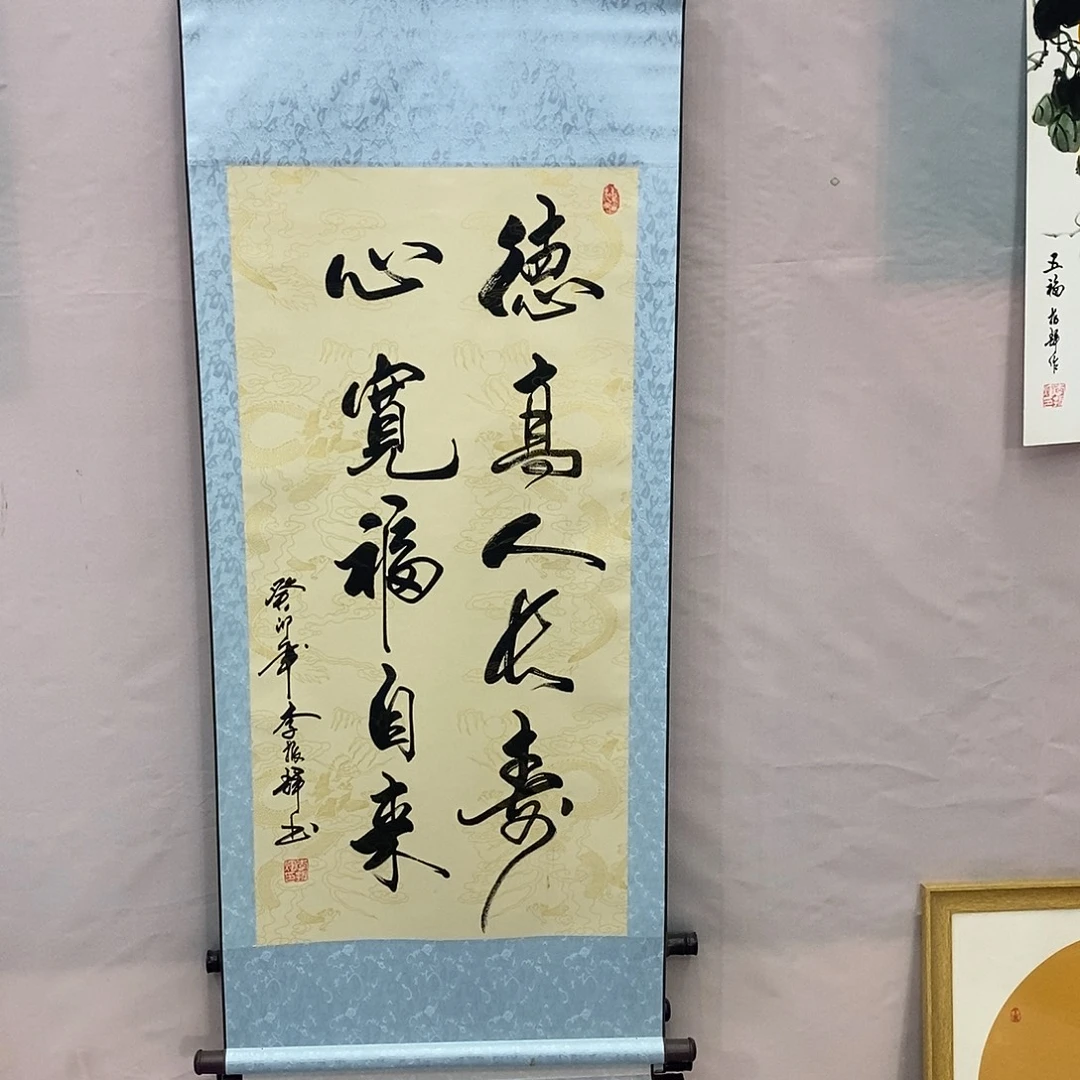 德高人长寿
心寬福自来
癸卯年李振輝书
五福 振輝作